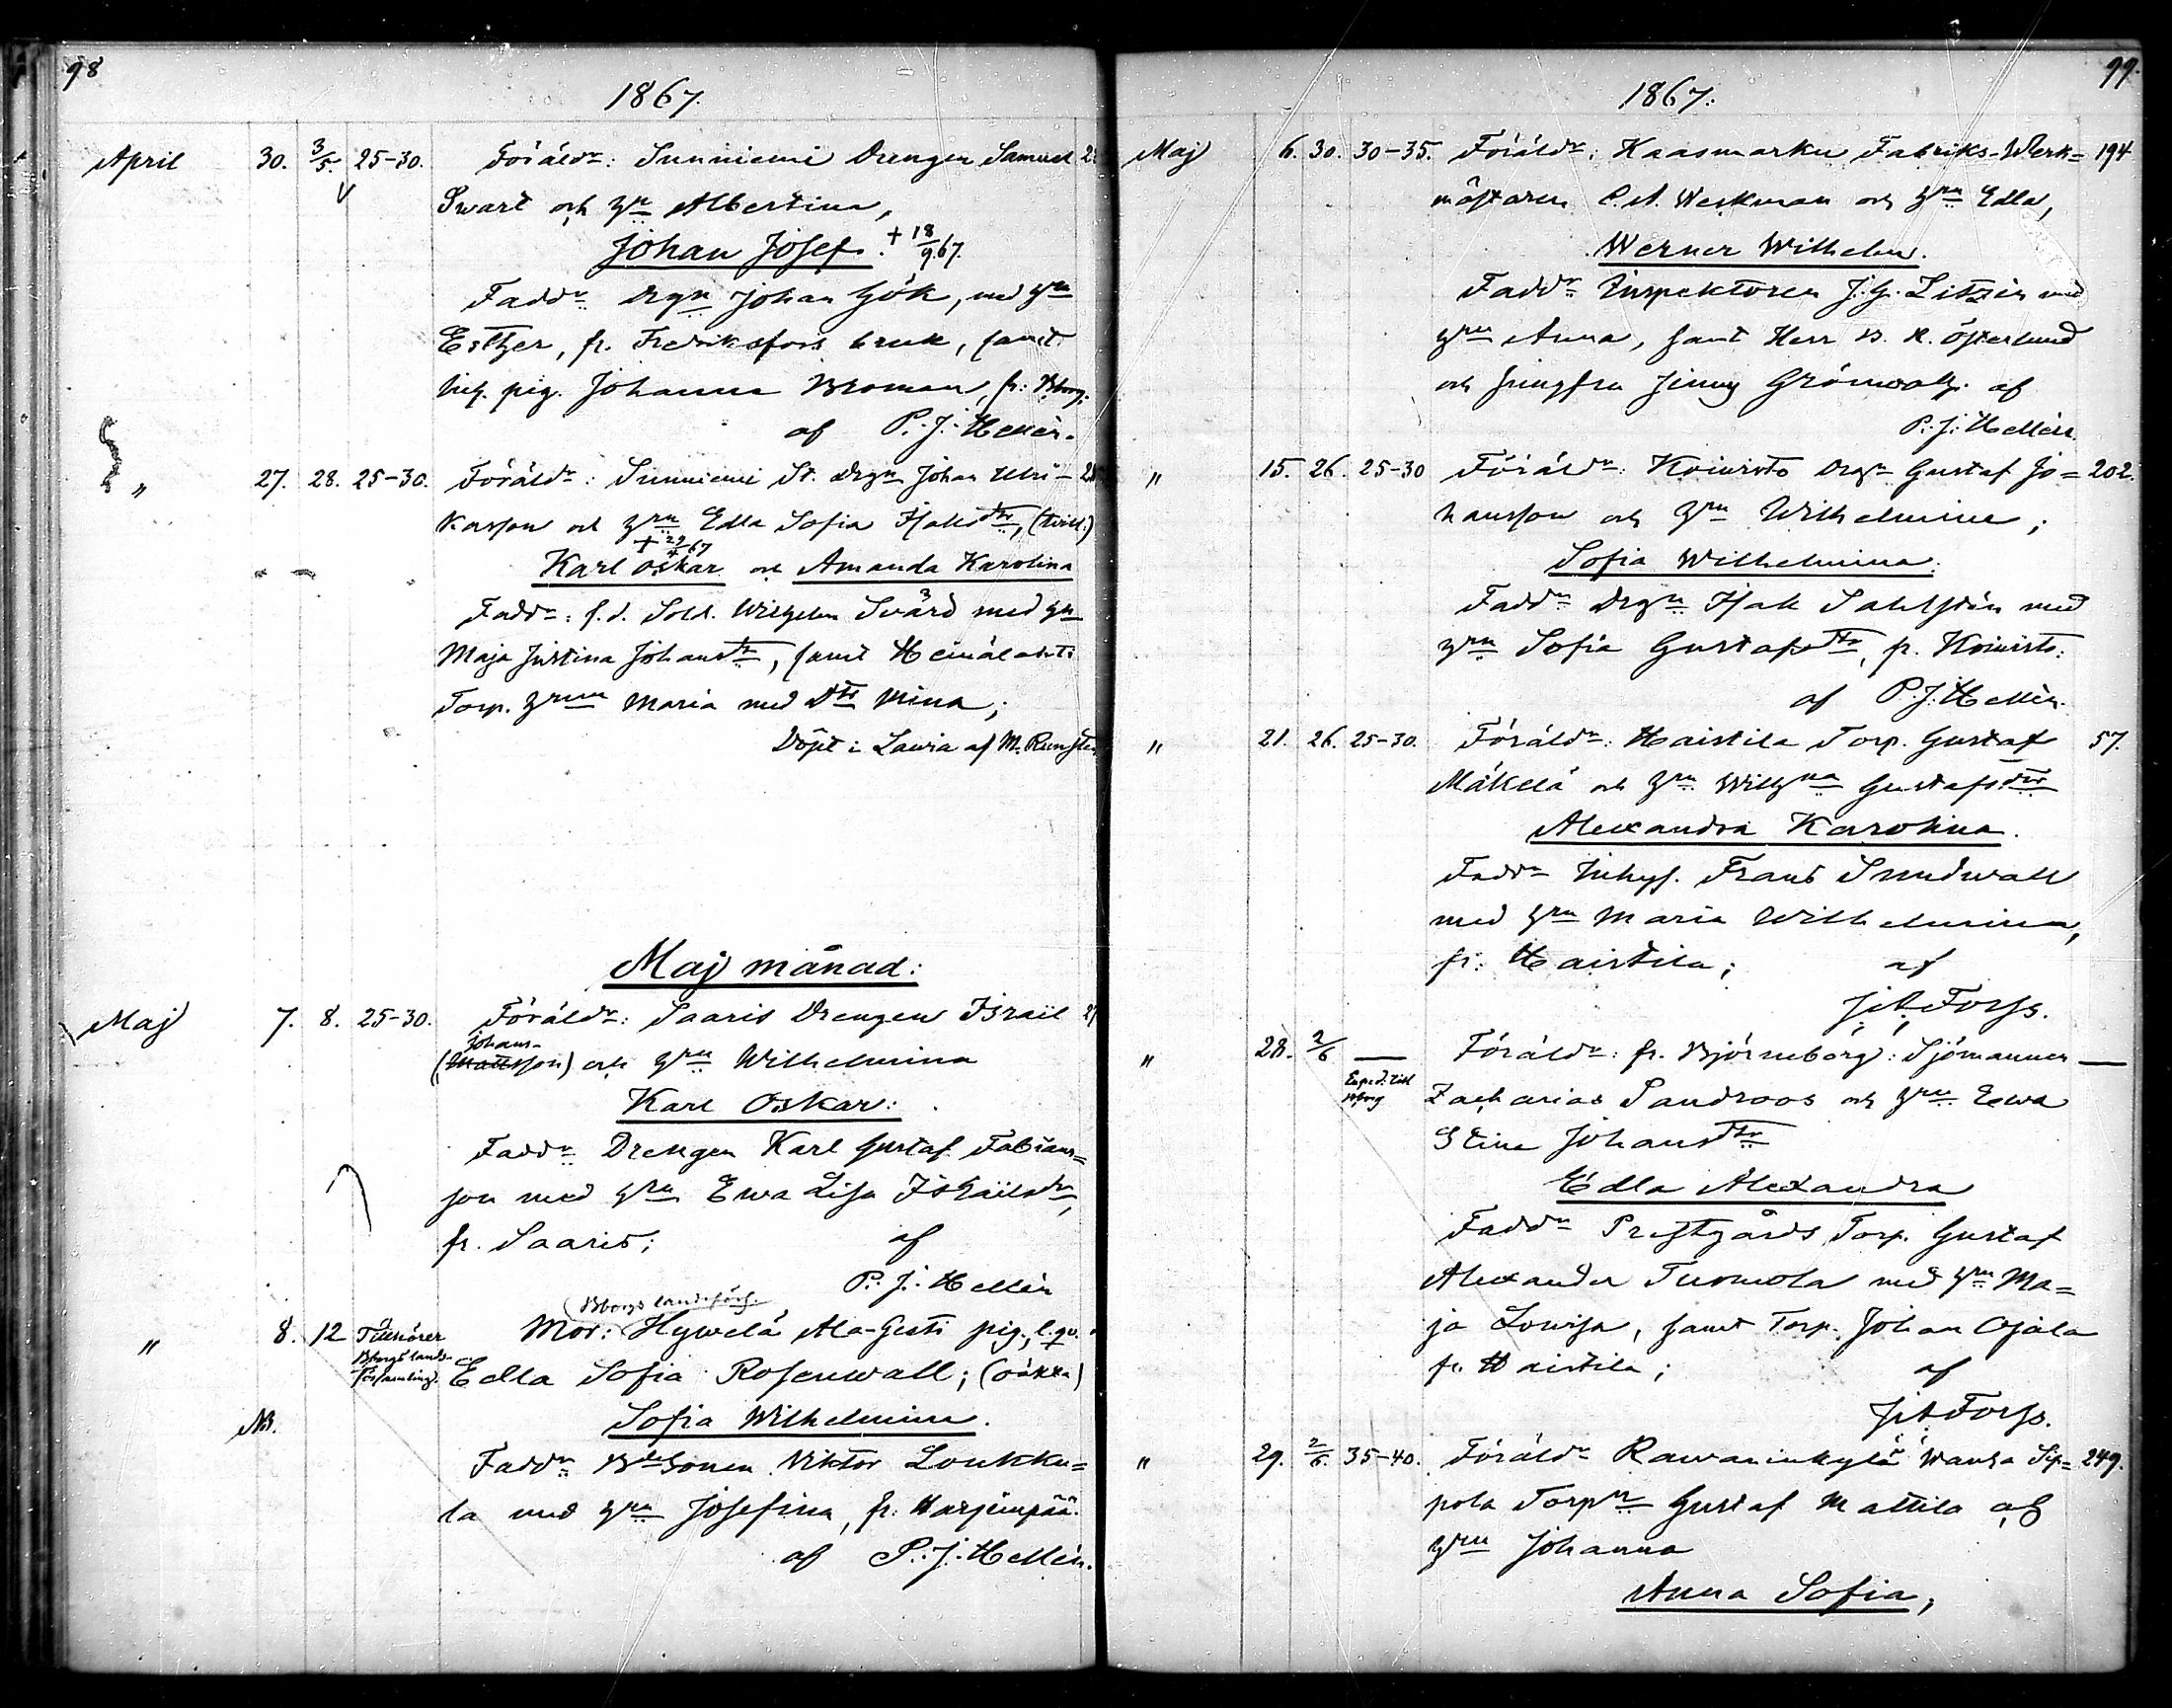 98
1867.
April 30. 3/5. 25-30. Föräldr: Sunniemi Drengen Samuel
Swart och hn Albertina,
Johan Josef. † 18/9.67.
Faddr Drgn Johan Gök, med hru
Esther, fr. Fredriksfors bruk, samt
inh. pig. Johanna Broman, fr: Bborg.
af P. J. Hellén.
" 27. 28. 25-30. Föräldr: Sunniemi St. Drgn Johan Ulri-
kasson och hru Edla Sofia Isaksdtr, (tvill.)
† 29/4 67
Karl Oskar och Amanda Karolina
Faddr: f.d. Sold. Wilhelm Svärd med hu
Maja Justina Johansdtr, samt
Torp. hrun Maria med Dtr Mina;
Döpt i Lawia af M. Rungsten
Maj månad:
Maj 7. 8. 25-30. Föräldr: Saaris Drengen Israil
Johans-
(Mattsson) och hru Wilhelmina
Karl Oskar:
Faddr Drengen Karl Gustaf Fabians=
son med hru Ewa Lisa Israilsdr,
fr. Saaris; af
P. J. Hellén
(Bborgs landsförs.
" 8. 12 Tillhörer Mor: Hywelä Ala-Gesti pig., l. qv.
Bborgs lands-
församling. Edla Sofia Rosenwall; (oäkta)
NB. Sofia Wilhelmina.
Faddr Bdesonen Viktor Loukku=
la med hru Josefina, fr. Harjunpää.
af P. J. Hellén.
99.
1867.
Maj 6. 30. 30-35. Föräldr: Kaasmarku Fabriks-Werk= 194
mästaren C. A. Weckman och hru Edla,
Werner Wilhelm.
Faddr Inspektoren J. G. Litzén med
hru Anna, samt Herr B. R. Österlund
och jungfru Jinny Grönwall. af
P. J. Hellén.
" 15. 26. 25-30 Föräldr: Koivisto Drgn Gustaf Jo= 202.
hansson och hru Wilhelmina;
Sofia Wilhelmina.
Faddr Drgn Isak Sahlstén med
hru Sofia Gustafsdtr, fr. Koivisto.
af P. J. Hellén.
" 21. 26. 25-30. Föräldr: Haistila Torp. Gustaf 57.
Mäkelä och hru Wilhna Gustafsdtr
Alexandra Karolina.
Faddr Inhys. Frans Sundwall
med hru Maria Wilhelmina,
fr. Haistila; af
J. A. Forss.
" 28. 2/6 — Föräldr: fr. Björneborg: Sjömannen —
Exped. till
Bborg Zacharias Sandroos och hru Ewa
Stina Johansdtr
Edla Alexandra
Faddr Prestgårds Torp. Gustaf
Alexander Tuomola med hru Ma=
ja Lowisa, samt Torp. Johan Ojala
fr. Haistila; af
J. A. Forss.
" 29. 2/6. 35-40. Föräldr Rawaninkylä Wanha Sip= 249.
pola Torpn Gustaf Mattila och
hru Johanna
Anna Sofia,